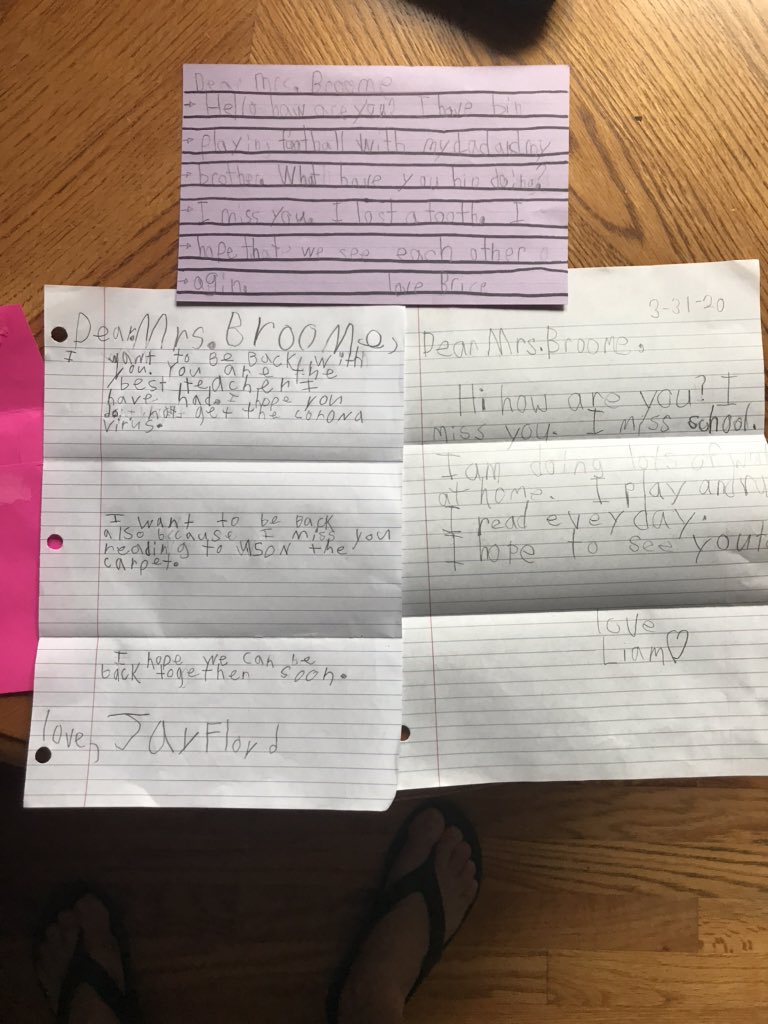 Dear Mrs. Broome
Hello how are you? I have bin
playing football with my dad and my
brother. What have you bin doing?
I miss you. I lost a tooth. I
hope that we see each other a
agin. love Brice
Dear Mrs. Broome,
I want to be back with
you. You are the
best teacher I
have had. I hope you
do not get the corona
virus.
I want to be back
also because I miss you
reading to us on the
carpet.
I hope we can be
back together soon.
love, Jay Floyd
3-31-20
Dear Mrs. Broome,
Hi how are you? I
miss you. I miss school.
I am doing lots of
at home. I play and
I read eveyday.
I hope to see you
love
Liam♡